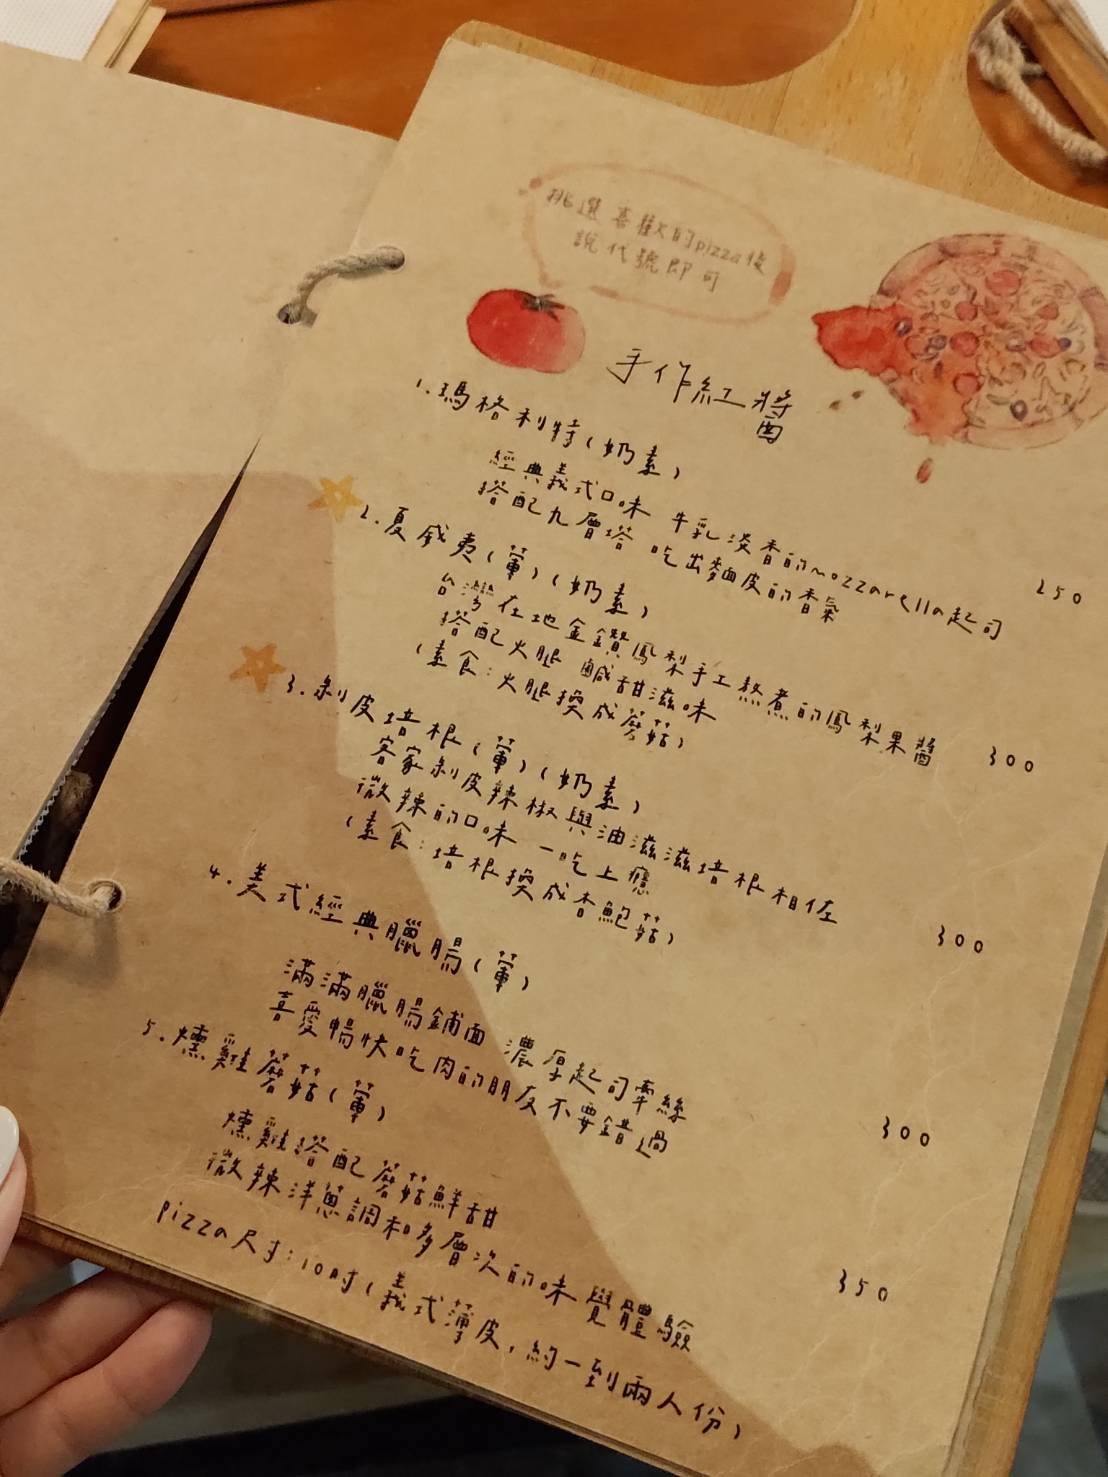 挑選喜歡的pizza後
說代號即可
手作紅醬
1.瑪格利特(奶素)
經典義式口味 牛乳淡香的mozzarella起司
搭配九層塔 吃出麵皮的香氣
250
2.夏威夷(葷)(奶素)
台灣在地金鑽鳳梨手工熬煮的鳳梨果醬
搭配火腿 鹹甜滋味
(素食:火腿換成蘑菇)
300
3.剝皮培根(葷)(奶素)
客家剝皮辣椒與油滋滋培根相佐
微辣的口味 一吃上癮
(素食:培根換成杏鮑菇)
300
4.美式經典臘腸(葷)
滿滿臘腸鋪面 濃厚起司牽絲
喜愛暢快吃肉的朋友不要錯過
300
5.燻雞蘑菇(葷)
燻雞搭配蘑菇鮮甜
微辣洋蔥調和多層次的味覺體驗
350
pizza尺寸:10吋(義式薄皮,約一到兩人份)